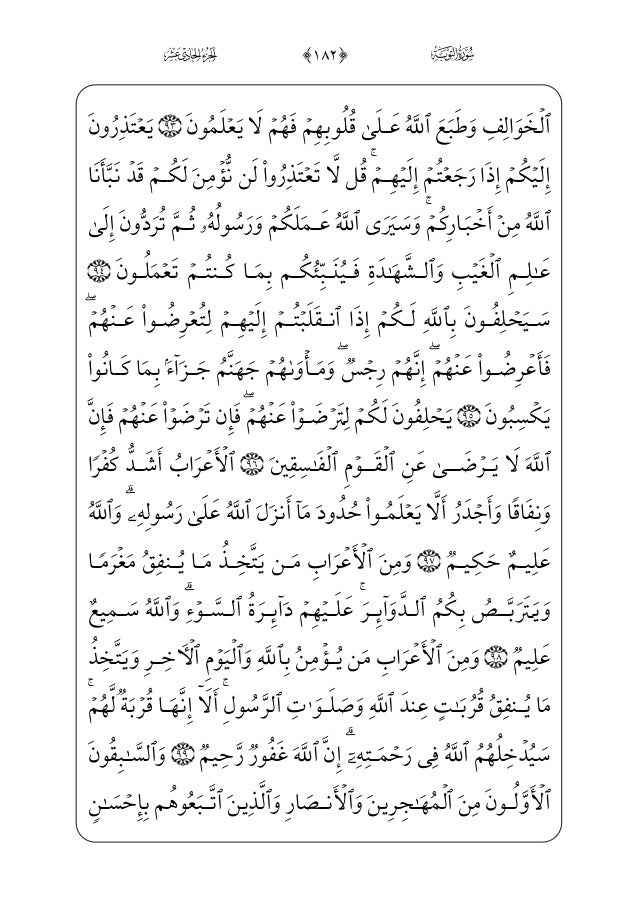 سُورَةُ التَّوْبَةِ ﴿١٨٢﴾ الجُزْءُ الحَادِي عَشَرَ
ٱلْخَوَالِفِ وَطَبَعَ ٱللَّهُ عَلَىٰ قُلُوبِهِمْ فَهُمْ لَا يَعْلَمُونَ ۝٩٣ يَعْتَذِرُونَ
إِلَيْكُمْ إِذَا رَجَعْتُمْ إِلَيْهِمْ ۚ قُل لَّا تَعْتَذِرُوا۟ لَن نُّؤْمِنَ لَكُمْ قَدْ نَبَّأَنَا
ٱللَّهُ مِنْ أَخْبَارِكُمْ ۚ وَسَيَرَى ٱللَّهُ عَمَلَكُمْ وَرَسُولُهُۥ ثُمَّ تُرَدُّونَ إِلَىٰ
عَـٰلِمِ ٱلْغَيْبِ وَٱلشَّهَـٰدَةِ فَيُنَبِّئُكُم بِمَا كُنتُمْ تَعْمَلُونَ ۝٩٤
سَيَحْلِفُونَ بِٱللَّهِ لَكُمْ إِذَا ٱنقَلَبْتُمْ إِلَيْهِمْ لِتُعْرِضُوا۟ عَنْهُمْ ۖ
فَأَعْرِضُوا۟ عَنْهُمْ ۖ إِنَّهُمْ رِجْسٌ ۖ وَمَأْوَىٰهُمْ جَهَنَّمُ جَزَآءًۢ بِمَا كَانُوا۟
يَكْسِبُونَ ۝٩٥ يَحْلِفُونَ لَكُمْ لِتَرْضَوْا۟ عَنْهُمْ ۖ فَإِن تَرْضَوْا۟ عَنْهُمْ فَإِنَّ
ٱللَّهَ لَا يَرْضَىٰ عَنِ ٱلْقَوْمِ ٱلْفَـٰسِقِينَ ۝٩٦ ٱلْأَعْرَابُ أَشَدُّ كُفْرًا
وَنِفَاقًا وَأَجْدَرُ أَلَّا يَعْلَمُوا۟ حُدُودَ مَآ أَنزَلَ ٱللَّهُ عَلَىٰ رَسُولِهِۦ ۗ وَٱللَّهُ
عَلِيمٌ حَكِيمٌ ۝٩٧ وَمِنَ ٱلْأَعْرَابِ مَن يَتَّخِذُ مَا يُنفِقُ مَغْرَمًا
وَيَتَرَبَّصُ بِكُمُ ٱلدَّوَآئِرَ ۚ عَلَيْهِمْ دَآئِرَةُ ٱلسَّوْءِ ۗ وَٱللَّهُ سَمِيعٌ
عَلِيمٌ ۝٩٨ وَمِنَ ٱلْأَعْرَابِ مَن يُؤْمِنُ بِٱللَّهِ وَٱلْيَوْمِ ٱلْـَٔاخِرِ وَيَتَّخِذُ
مَا يُنفِقُ قُرُبَـٰتٍ عِندَ ٱللَّهِ وَصَلَوَٰتِ ٱلرَّسُولِ ۚ أَلَآ إِنَّهَا قُرْبَةٌ لَّهُمْ ۚ
سَيُدْخِلُهُمُ ٱللَّهُ فِى رَحْمَتِهِۦٓ ۗ إِنَّ ٱللَّهَ غَفُورٌ رَّحِيمٌ ۝٩٩ وَٱلسَّـٰبِقُونَ
ٱلْأَوَّلُونَ مِنَ ٱلْمُهَـٰجِرِينَ وَٱلْأَنصَارِ وَٱلَّذِينَ ٱتَّبَعُوهُم بِإِحْسَـٰنٍ